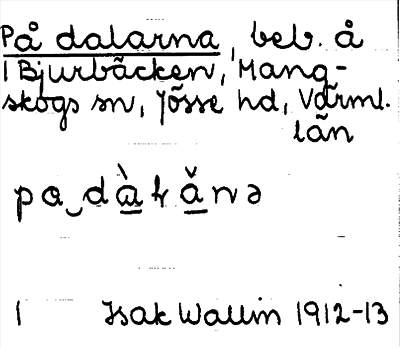 På dalarna, beb. å
1 Bjurbäcken, Mang-
skogs sn, Jösse hd, Värml.
län
1 Isak Wallin 1912-13